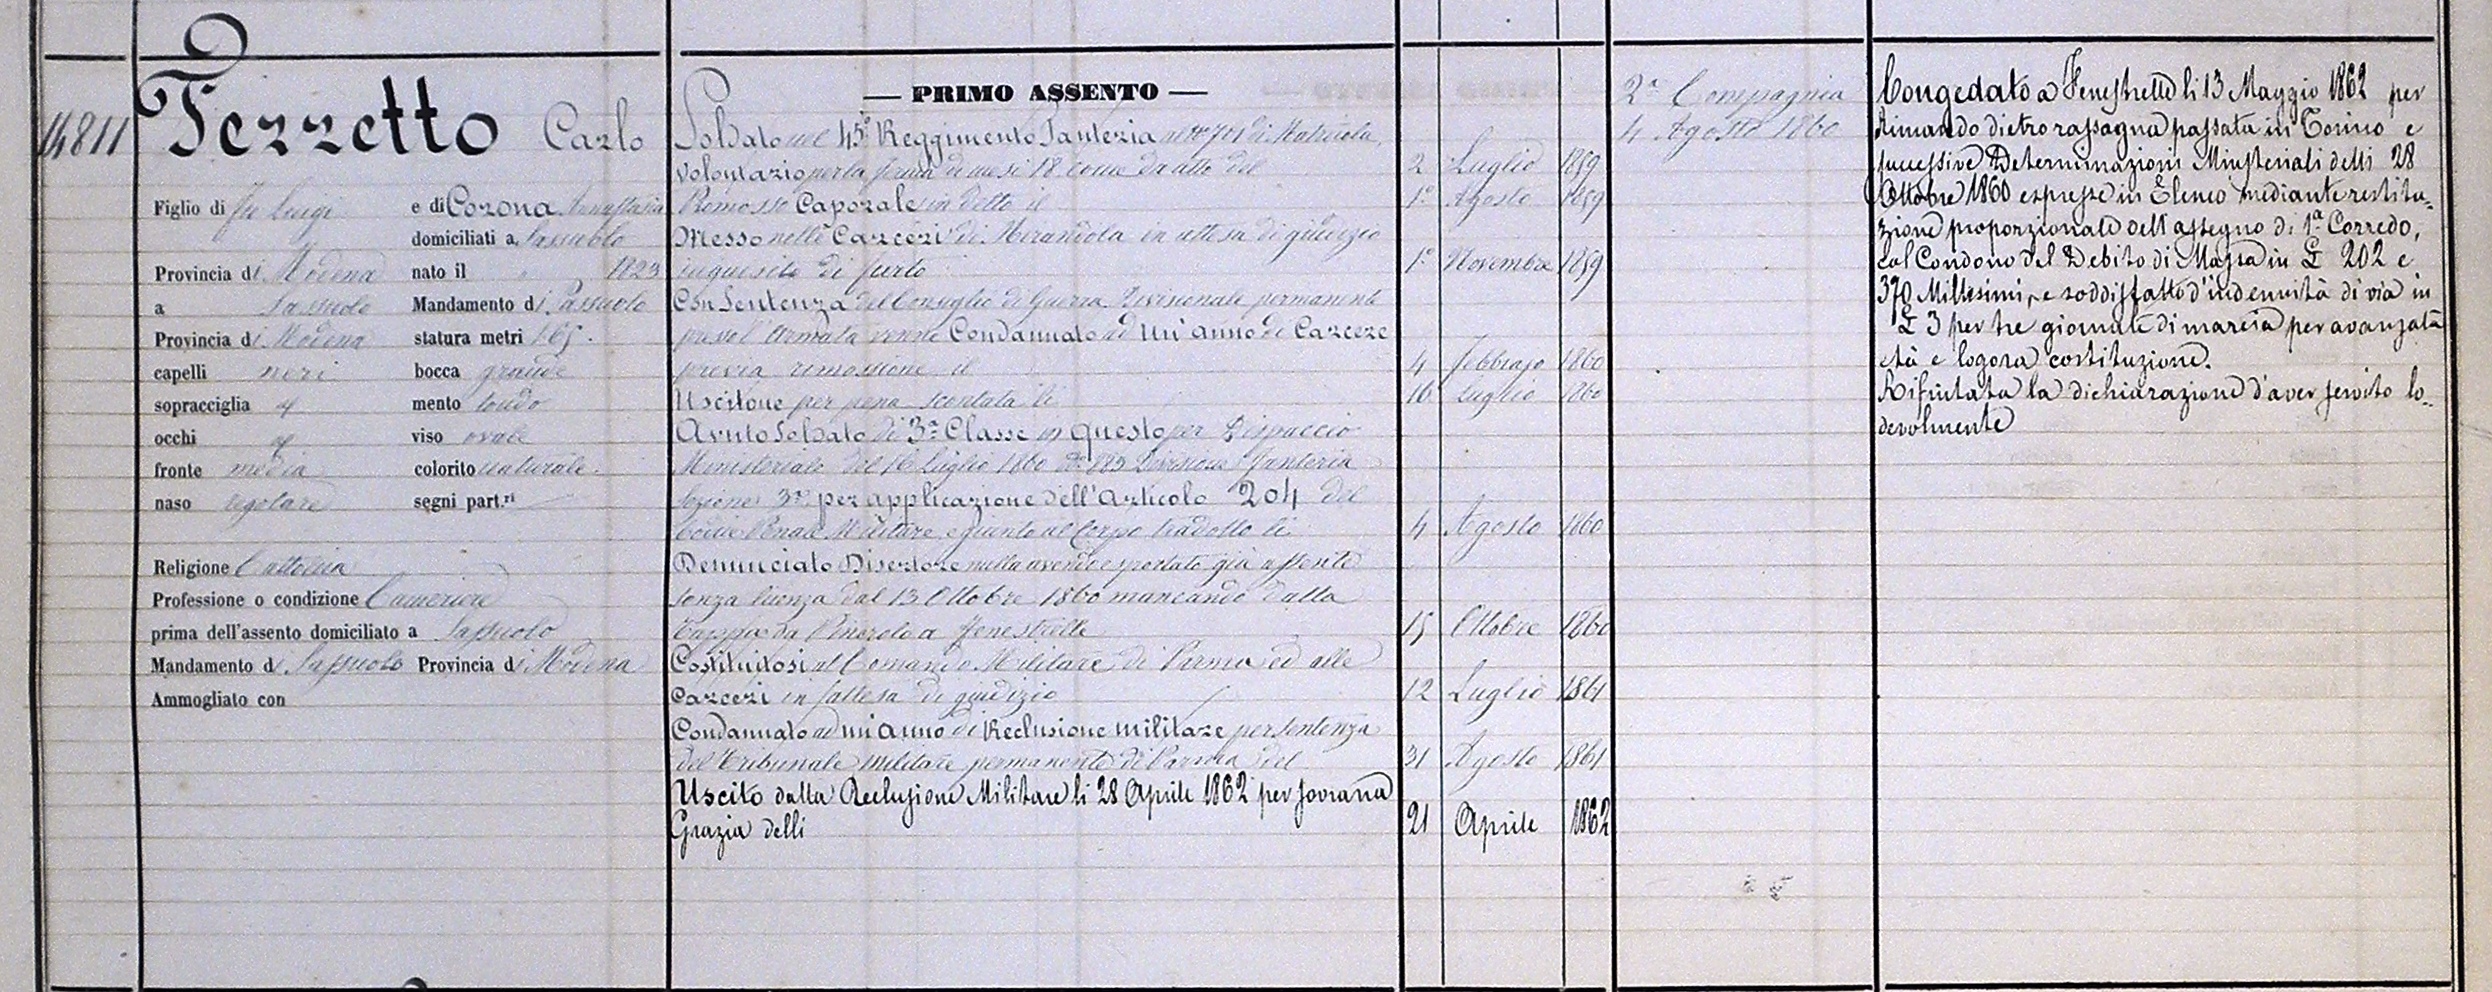 14811
Ferretto Carlo
Figlio di fu Luigi e di Corona Anastasia
domiciliati a Sassuolo
Provincia di Modena nato il 1823
a Sassuolo Mandamento di Sassuolo
Provincia di Modena statura metri 1.65.
capelli neri bocca grande
sopracciglia mento tondo
occhi viso ovale
fronte media colorito naturale.
naso regolare segni part.ri
Religione Cattolica
Professione o condizione Cameriere
prima dell'assento domiciliato a Sassuolo
Mandamento di Sassuolo Provincia di Modena
Ammogliato con
— PRIMO ASSENTO —
Soldato nel 45º Reggimento Fanteria al Nº 701 di Matricola,
volontario per la ferma di mesi 18 come da atto del 2 Luglio 1859
Promosso Caporale in detto il 1º Agosto 1859
Messo nelle Carceri di Mirandola in attesa di giudizio
inquisito di furto 1º Novembre 1859
Con Sentenza del Consiglio di Guerra Divisionale permanente
presso l'Armata venne Condannato ad Un'anno di Carcere
previa rimozione il 4 Febbrajo 1860
Uscitone per pena scontata li 16 Luglio 1860
Avuto Soldato di 3ª Classe in questo per Dispaccio
Ministeriale del 16 Luglio 1860 Nº 183 Divisione Fanteria
Sezione 3ª per applicazione dell'Articolo 204 del
Codice Penale Militare e giunto al Corpo tradotto li 4 Agosto 1860
Denunciato Disertore nulla avendo esportato già assente
senza licenza dal 13 Ottobre 1860 mancando dalla
tappa da Pinerolo a Fenestrelle 15 Ottobre 1860
Costituitosi al Comando Militare di Parma ed alle
Carceri in attesa di giudizio 12 Luglio 1861
Condannato ad un'anno di Reclusione militare per sentenza
del Tribunale militare permanente di Parma del 31 Agosto 1861
Uscito dalla Reclusione Militare li 28 Aprile 1862 per Sovrana
Grazia delli 21 Aprile 1862
2ª Compagnia
4 Agosto 1860
Congedato a Fenestrelle li 13 Maggio 1862 per
rimando dietro rassegna passata in Torino e
successive Determinazioni Ministeriali delli 28
Ottobre 1860 espresse in Elenco mediante restitu-
zione proporzionale dell'assegno di 1º Corredo,
col Condono del Debito di Massa in £ 202 e
370 Millesimi, e soddisfatto d'indennità di via in
£ 3 per tre giornate di marcia per avanzata
età e logora costituzione.
Rifiutata la dichiarazione d'aver servito lo-
devolmente